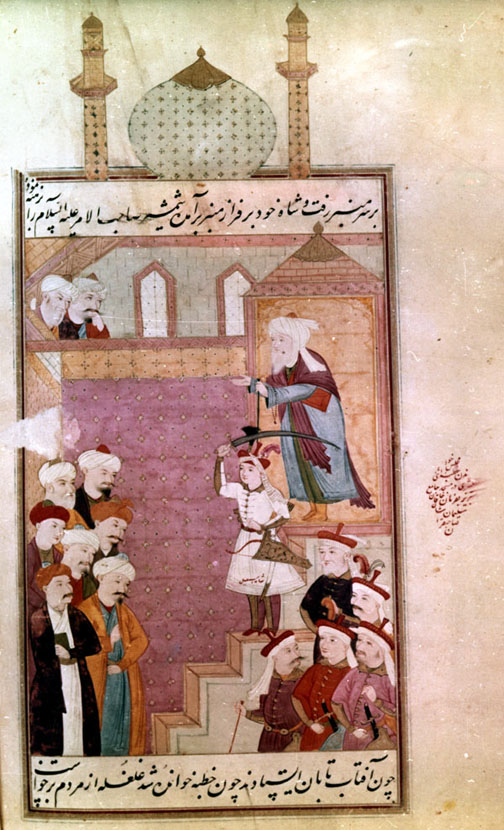 بر سر منبر رفت و شاه خود بر فراز منبر برآمدن شمشیر صاحب الامر علیه السلام را
نمود
شاه اسمعیل
چون آفتاب تابان ایستادند چون خطبه خواندن شد غلغله از مردم برخواست